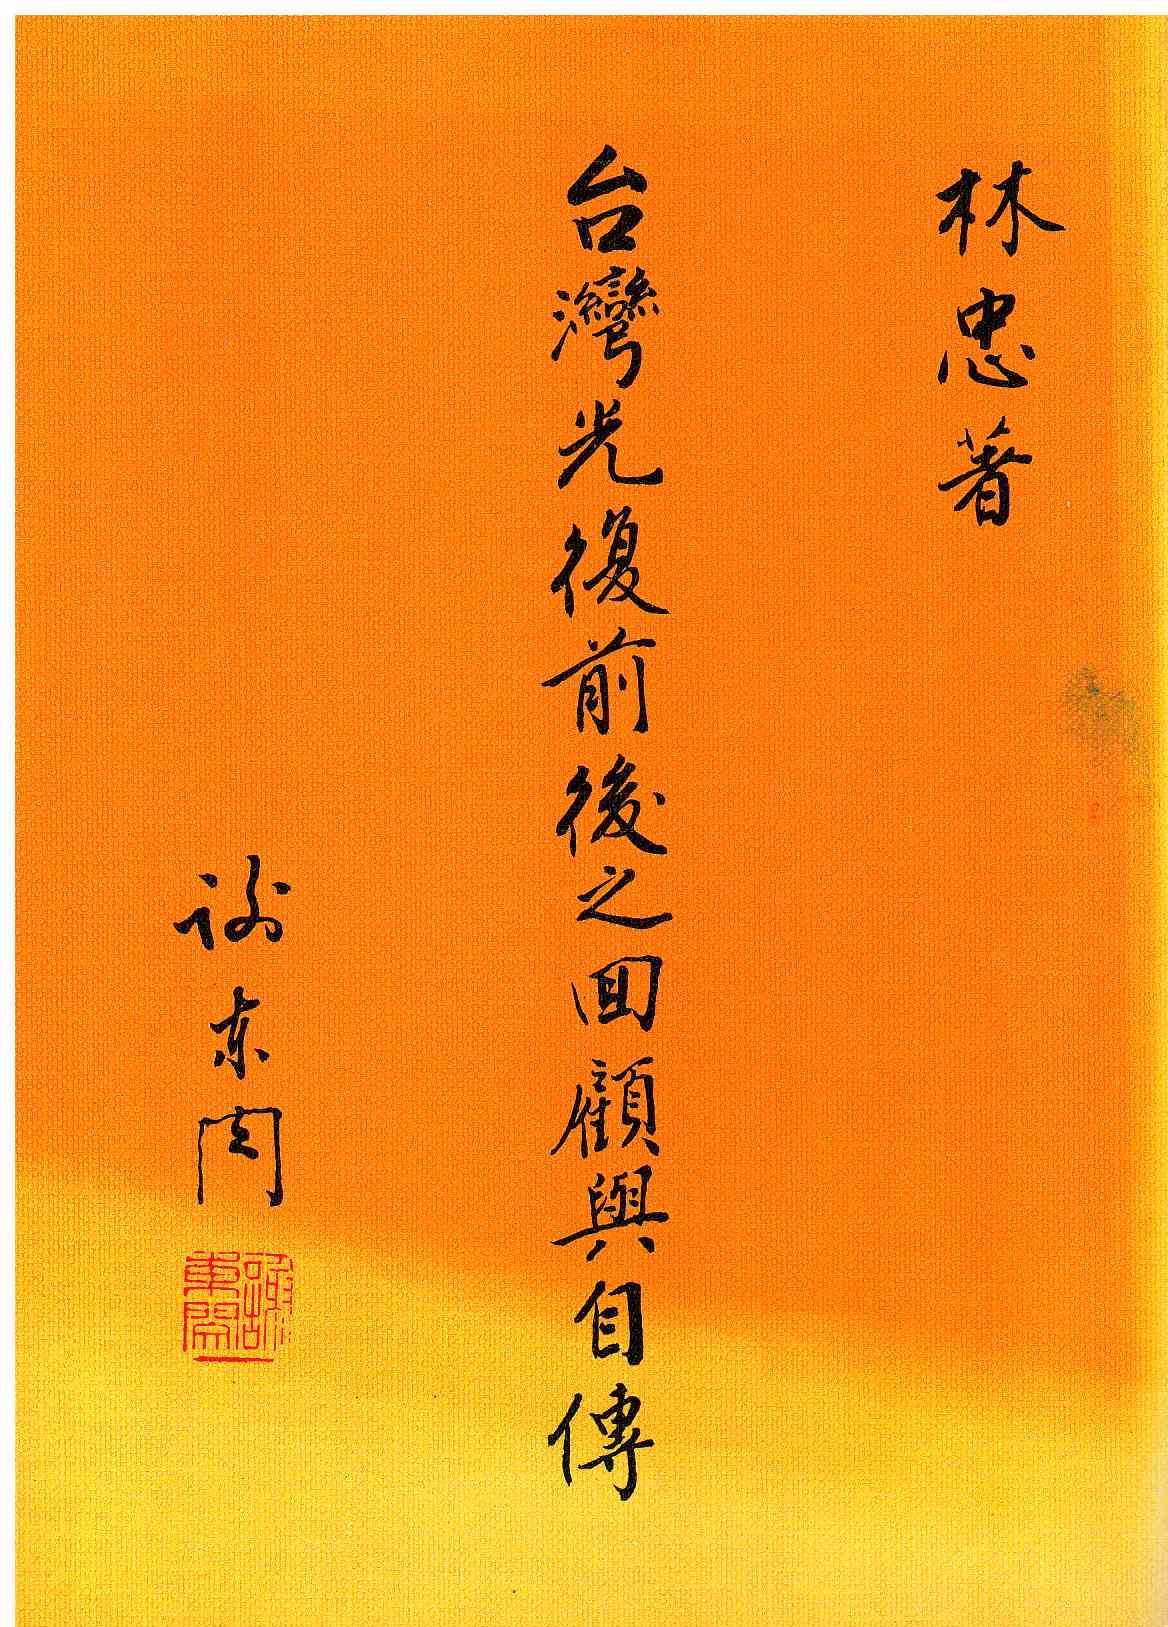 林忠著
台灣光復前後之回顧與自傳
謝東閔
謝東閔